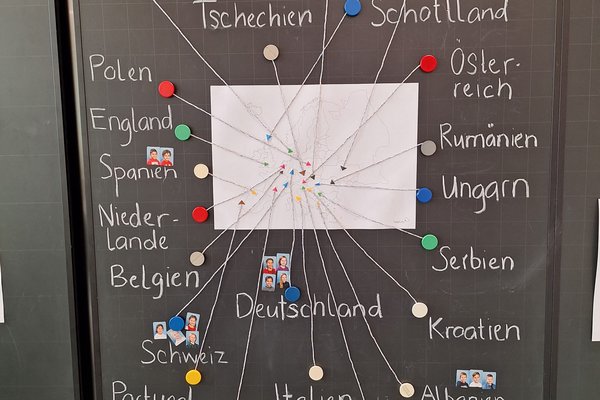 Tschechien
Schottland
Polen
Öster-
reich
England
Rumänien
Spanien
Ungarn
Nieder-
lande
Serbien
Belgien
Deutschland
Kroatien
Schweiz
Portugal
Italien
Albanien